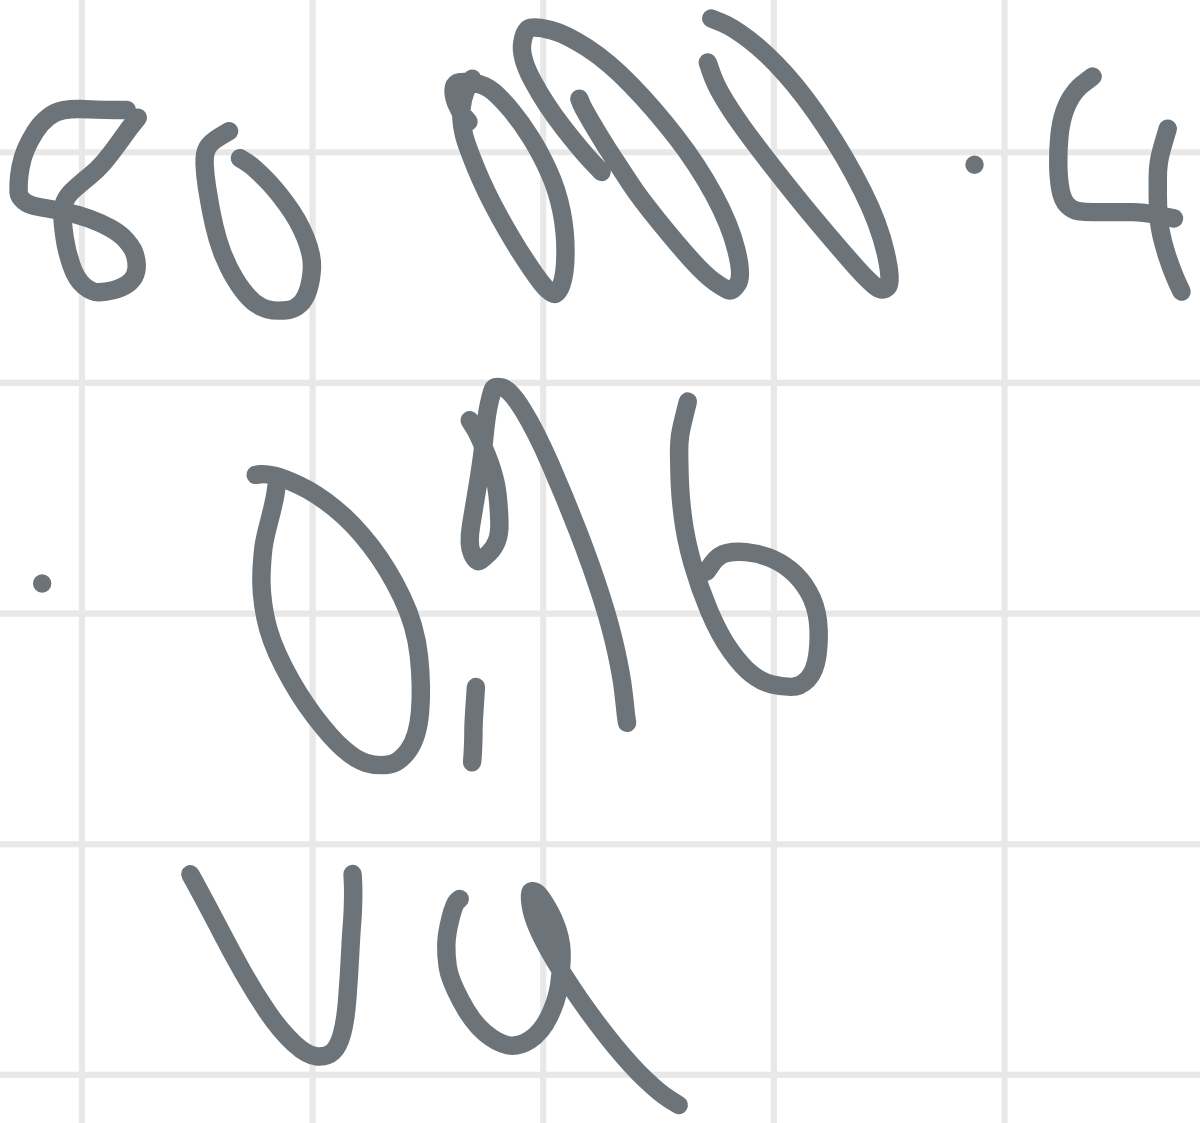 80 000 · 4
· 0,16
va